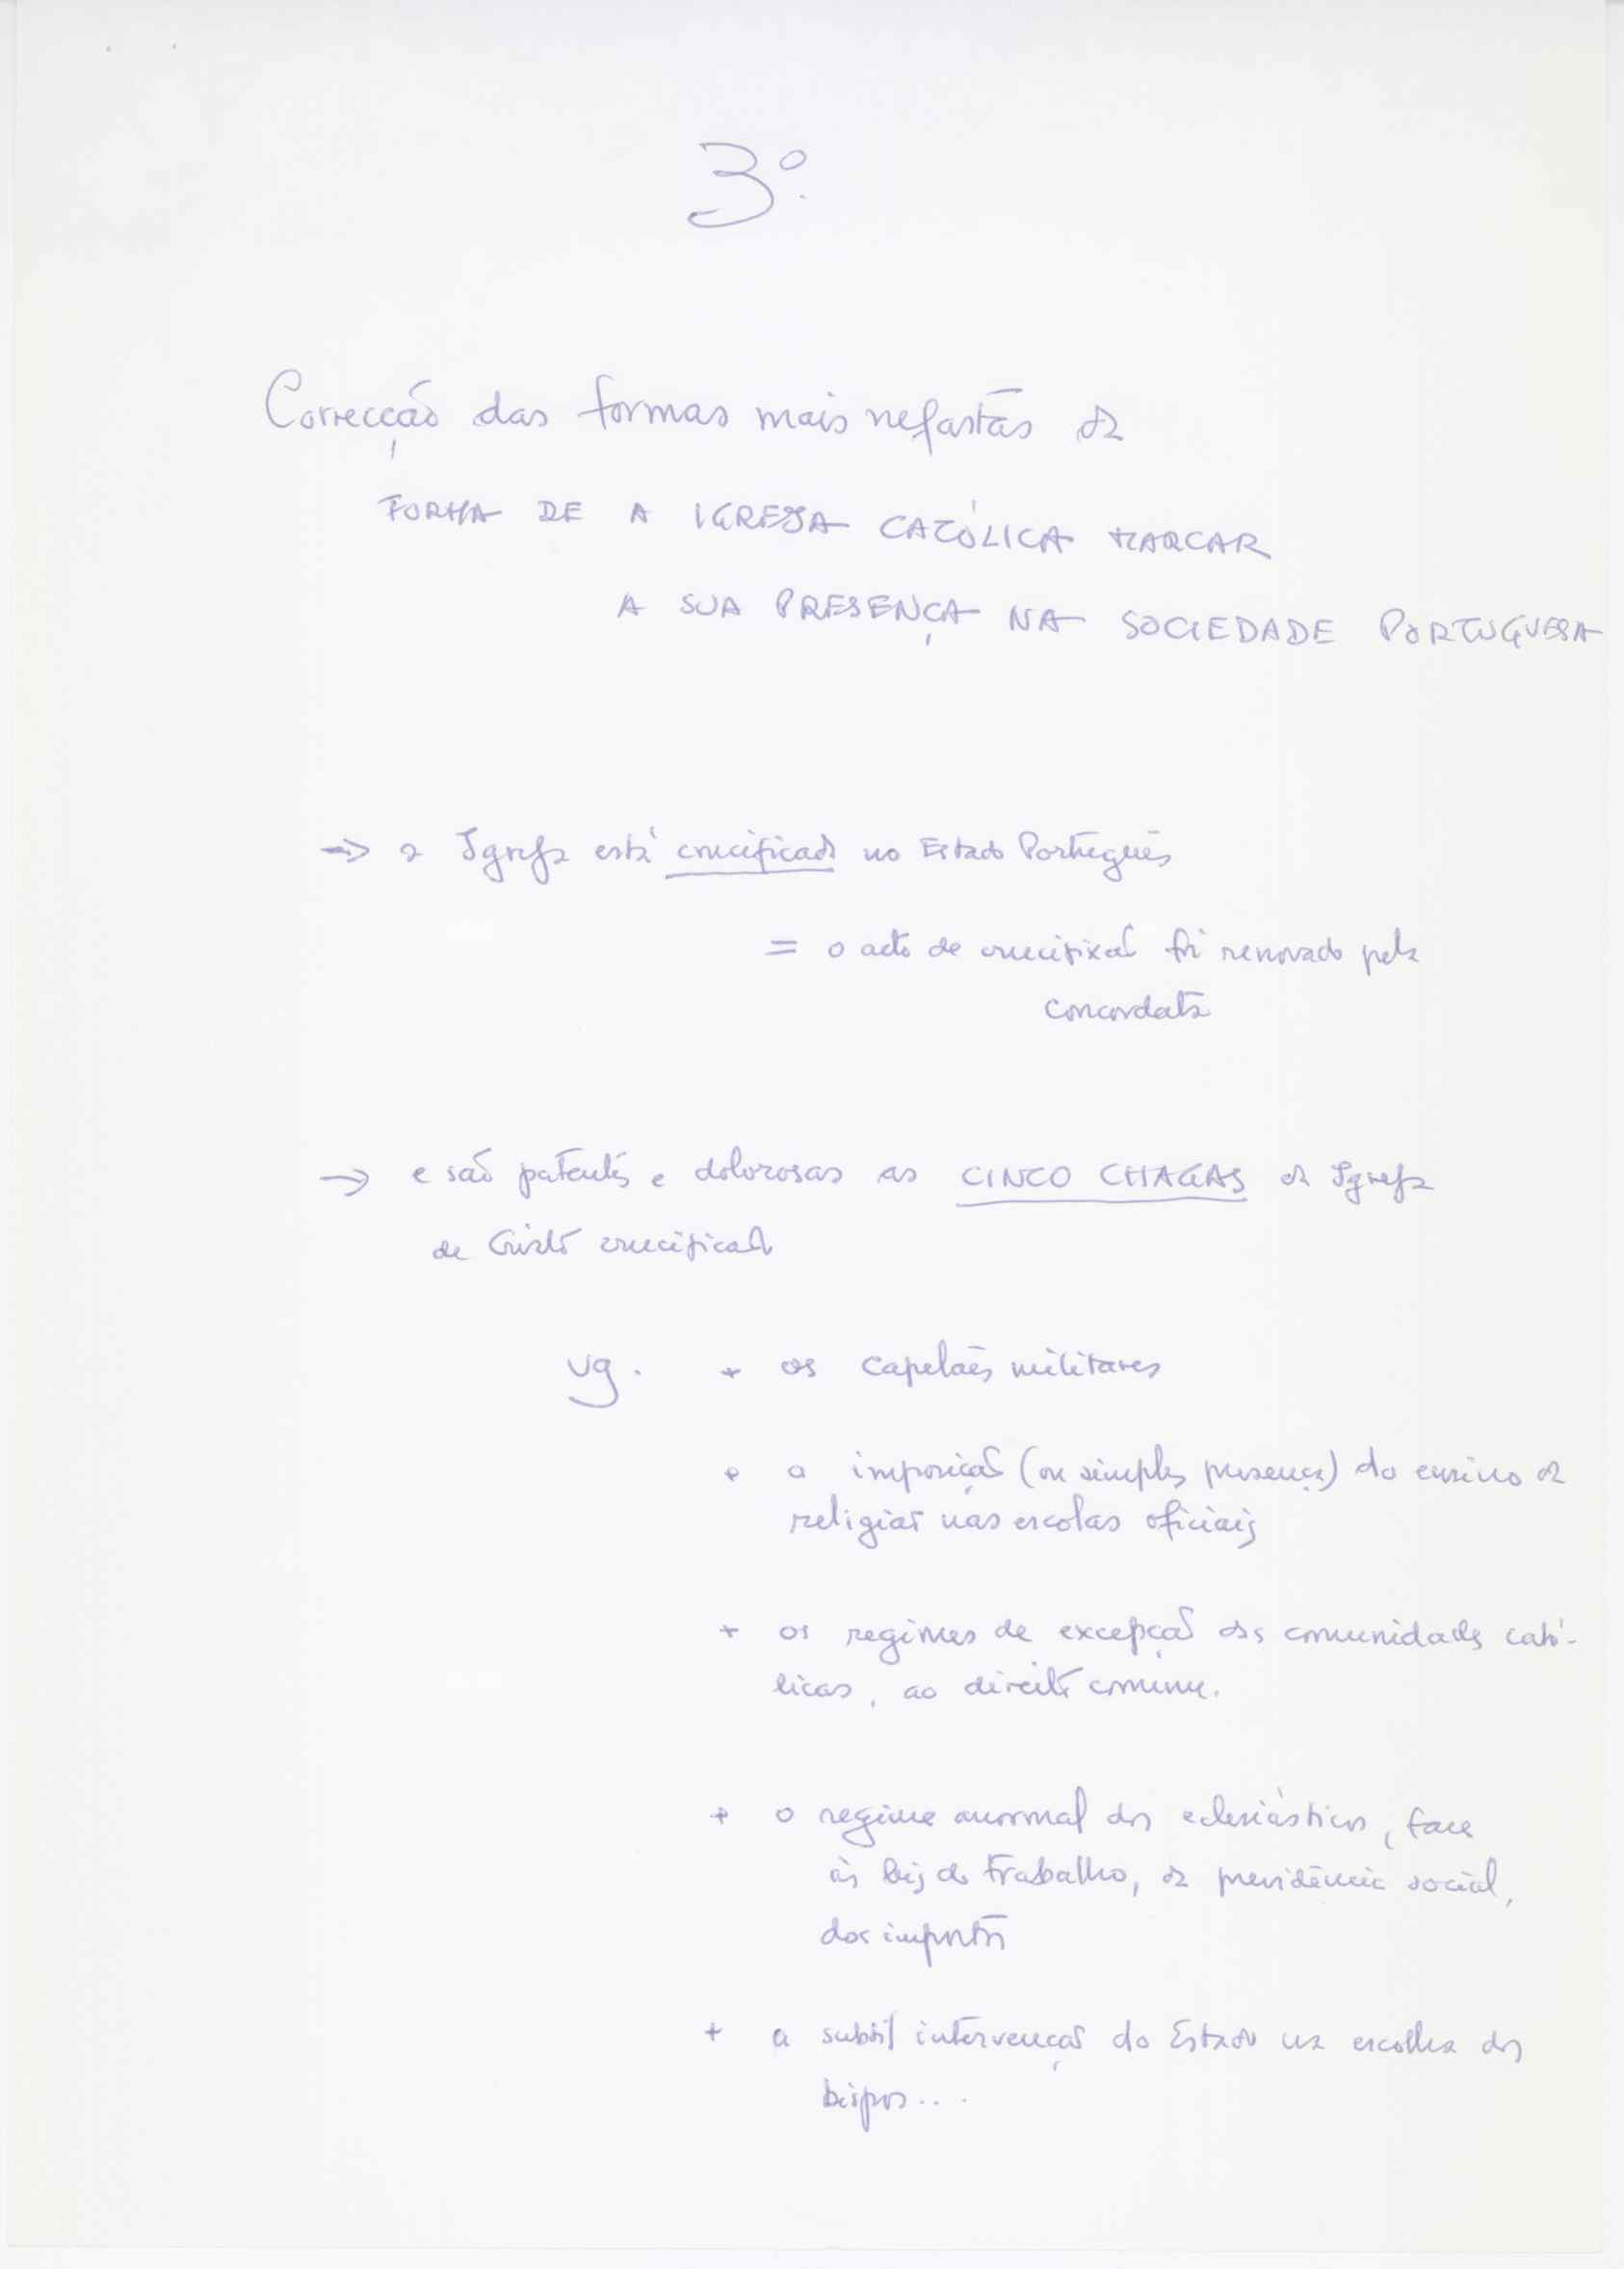 3º.
Correcção das formas mais nefastas da
FORMA DE A IGREJA CATÓLICA MARCAR
A SUA PRESENÇA NA SOCIEDADE PORTUGUESA
→ a Igreja está crucificada no Estado Português
= o acto de crucifixão foi renovado pela
concordata
→ e são patentes e dolorosas as CINCO CHAGAS da Igreja
de Cristo crucificado
vg. + os capelães militares
+ a imposição (ou simples presença) do ensino da
religião nas escolas oficiais
+ os regimes de excepção das comunidades cató-
licas, ao direito comum.
+ o regime anormal dos eclesiásticos, face
às leis do Trabalho, da previdência social,
dos impostos
+ a subtil intervenção do Estado na escolha dos
bispos...